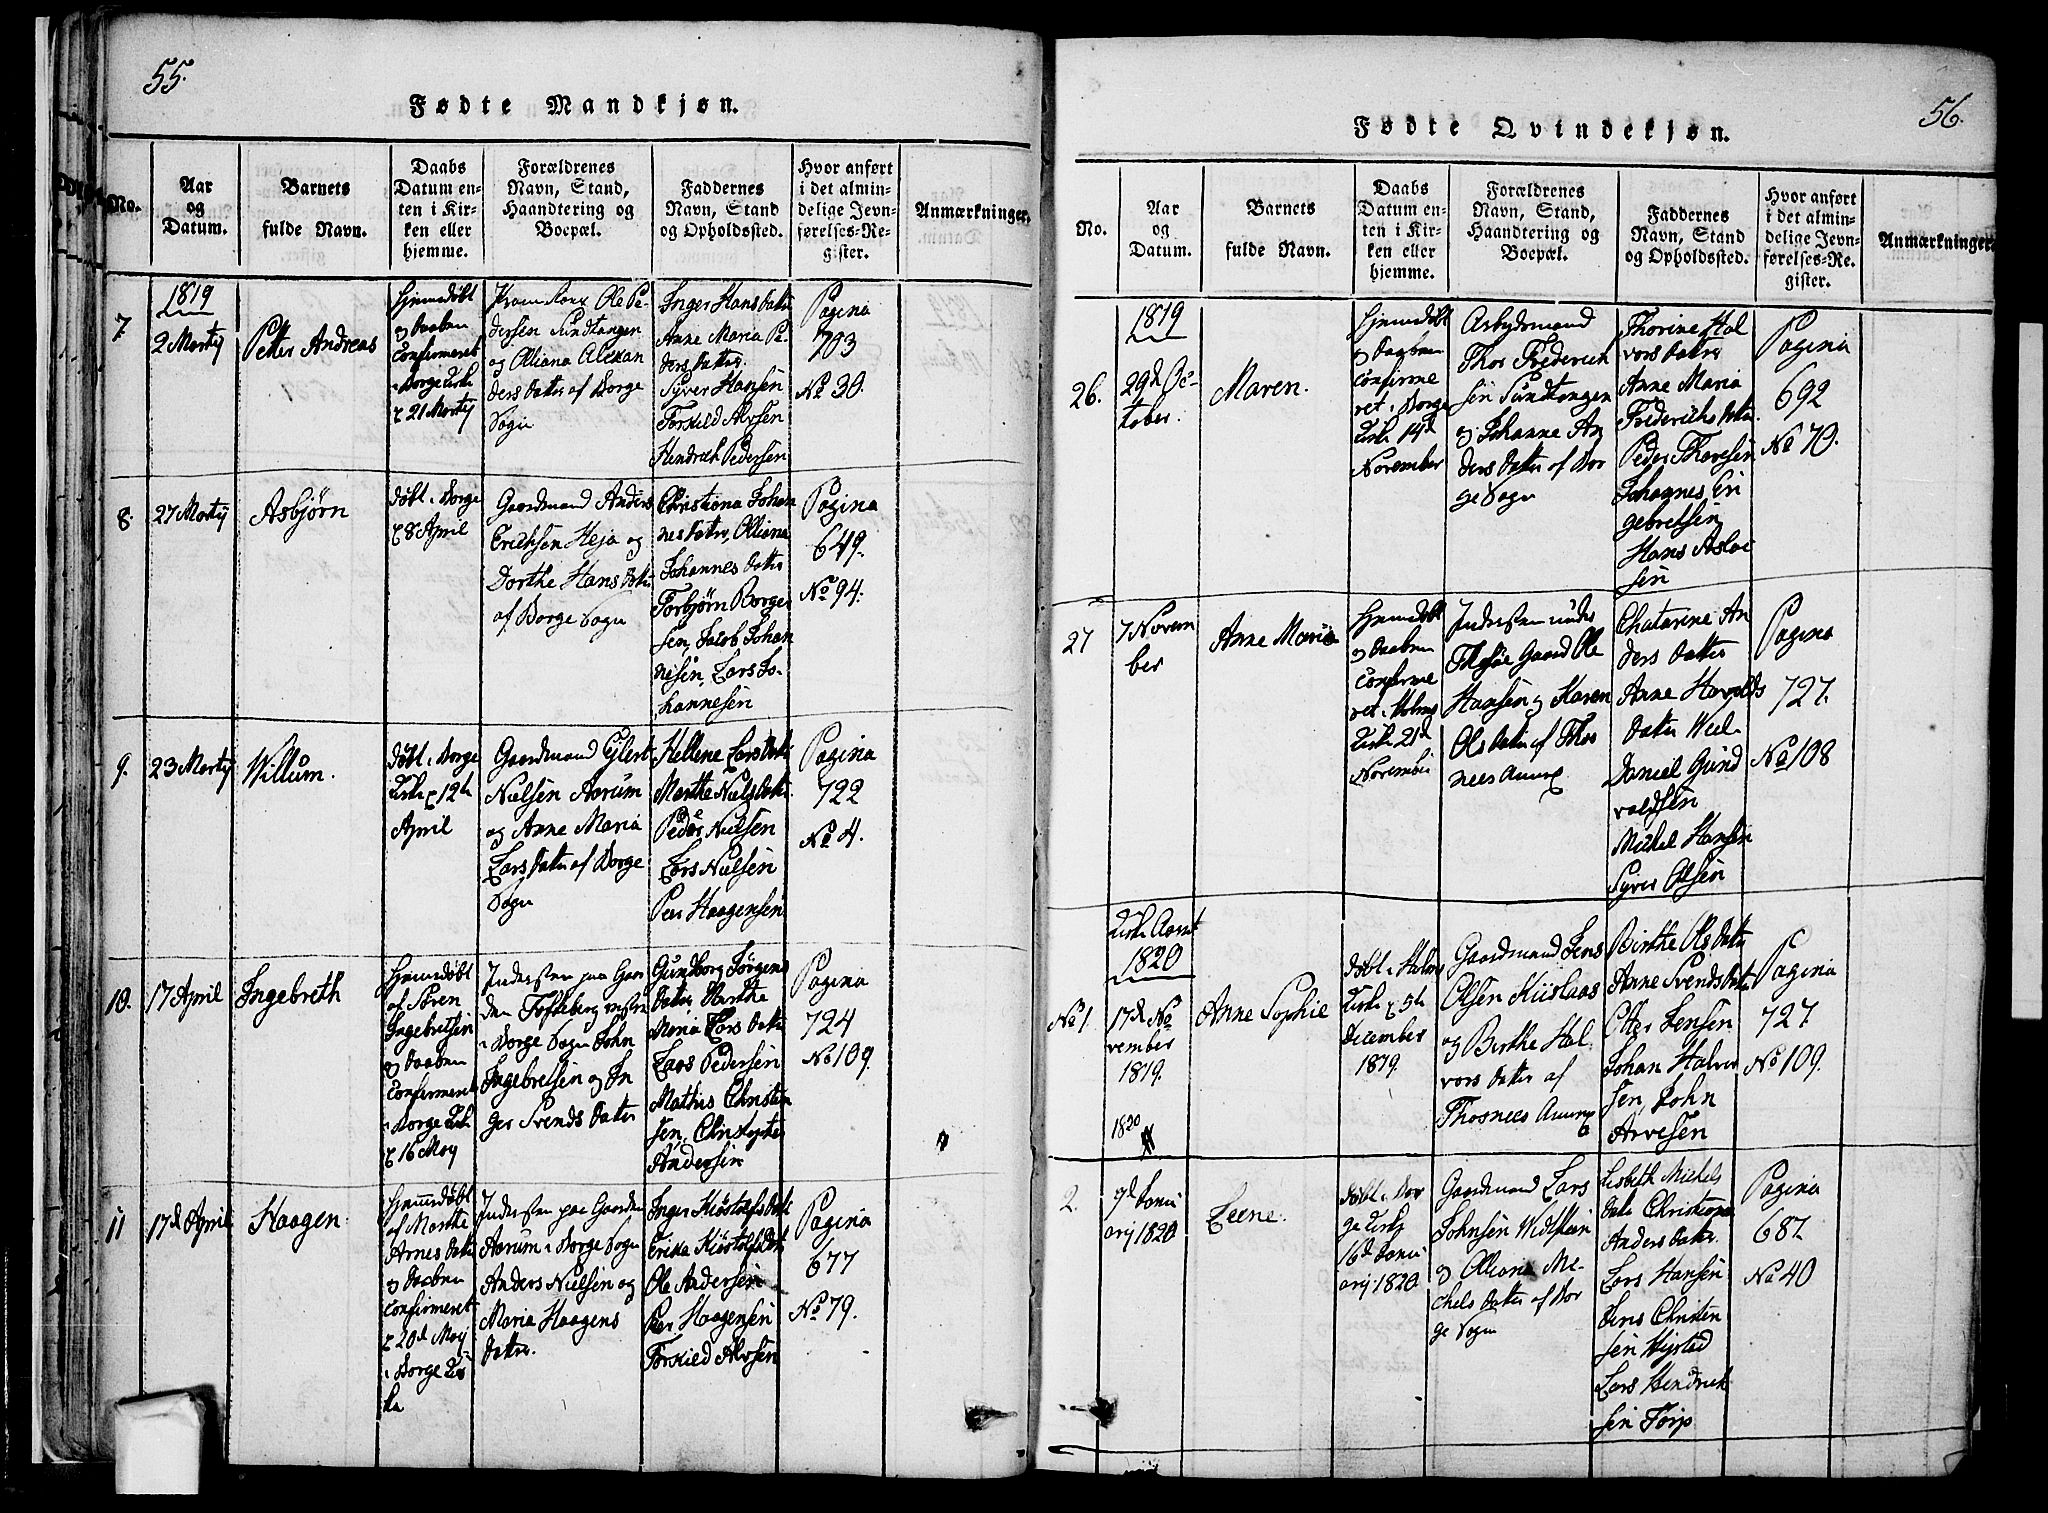 55.
Fødte Mandkjøn.
No.
Aar
og
Datum.
Barnets
fulde Navn.
Daabs
Datum en-
ten i Kir-
ken eller
hjemme.
Forældrenes
Navn, Stand,
Haandtering og
Boepæl.
Faddernes
Navn, Stand
og Opholdssted.
Hvor anført
i det almin-
delige Jevn-
førelses-Re-
gister.
Anmærkninger.
7
1819
2 Martij
Petter Andreas
Hjemedøbt
og Daaben
confirmeret
i Borge Kirke
21 Martij
Ole Pe-
dersen Sundtangen
og Olliana Alexan
ders Datter af Borge
Sogn
Inger Hans Datter
Anne Maria Pe-
ders Datter
Syver Hansen
Torkild Alvsen
Hendrich Pedersen
Pagina
703
No 30.
8.
27 Martij
Asbjørn
døbt i Borge
8 April
Gaardmand Anders
Erichsen Heja og
Dorthe Hans Datter
af Borge Sogn
Christiana Johan
nes Datter, Olliana
Johannes Datter
Torbjørn Borger
sen, Jacob Johan
nesen, Lars Jo-
hannesen
Pagina
649.
No 94.
9.
23 Martij
Willum.
døbt i Borge
Kirke 12te
April
Gaardmand Eylert
Nielsen Aarum
og Anne Maria
Lars Datter af Borge
Sogn
Hellene Lars Datter
Marthe Niels Datter
Peder Nielsen
Lars Nielsen
Peer Haagensen
Pagina
722
No 4.
10.
17 April
Ingebreth
Hjemedøbt
af Søren
Ingebretsen
og Daaben
confirmeret
i Borge Kirke
16 May
Indersten paa Gaar
den Tofteberg
i Borge Sogn John
Ingebretsen og In
ger Svends Datter
Gundborg Jørgens
Datter Birthe
Maria Lars Datter
Lars Pedersen
Mathis Christen
sen, Christopher
Andersen
Pagina
724
No 109.
11
17d April
Haagen
Hjemedøbt
af Marthe
Arnes Datter
og Daaben
confirmeret
20d May
i Borge Kir
ke
Indersten paa Gaarden
Aarum i Borge Sogn
Anders Nielsen og
Maria Haagens
Datter.
Inger Kiøstolfs Datter
Erika Kiøstolfs Datter
Ole Andersen
Peer Haagensen
Torkild Alvsen
Pagina
677
No 79.
56.
Fødte Qvindekjøn.
No.
Aar
og
Datum.
Barnets
fulde Navn.
Daabs
Datum en-
ten i Kir-
ken eller
hjemme.
Forældrenes
Navn, Stand,
Haandtering og
Boepæl.
Faddernes
Navn, Stand
og Opholdssted.
Hvor anført
i det almin-
delige Jevn-
førelses-Re-
gister.
Anmærkninger.
26.
1819
29d Oc-
tober.
Maren.
Hjemedøbt
og Daaben
confirme
ret i Borge
Kirke 14d
November
Arbejdsmand
Thor Frederich
sen Sundtangen
og Johanne An
ders Datter af Bor
ge Sogn
Thorine Hal
vors Datter
Anne Maria
Frederichs Datter
Peder Thoresen
Johannes En
gebretsen
Hans Asloe
sen
Pagina
692
No 70.
27
7 Novem
ber
Anne Maria
Hjemedøbt
og Daaben
confirme
ret i Holms
Kirke 21d
November
Indersten under
Gaard Ole
Hansen og Karen
Ols Datter af Thos
nees Annex
Chatarine An
ders Datter
Anne Harolds
Datter
Daniel Gund
valdsen
Michel Hansen
Syver Olsen
Pagina
727.
No 108
Kirke Aaret
1820
No 1.
17d No
vember
1819.
Anne Sophie
døbt i Holms
Kirke 5te
December
1819.
Gaardmand Jens
Olsen Kiislaas
og Birthe Hal
vors Datter af
Thosnees Annex
Birthe Ols Datter
Anne Svends Datter
Otter Jensen
Johan Halvor
sen, John
Arvesen
Pagina
727
No 109.
1820
2.
9d Janu
arij 1820
Leene.
døbt i Bor
ge Kirke
16d Janu
arij 1820
Gaardmand Lars
Johnsen Hvidsteen
og Olliana Mi-
chels Datter af Bor
ge Sogn
Lisbeth Michels
Datter Christiana
Anders Datter
Lars Hansen
Jens Christen
sen
Lars Hendrick
sen Torp
Pagina
687
No 40